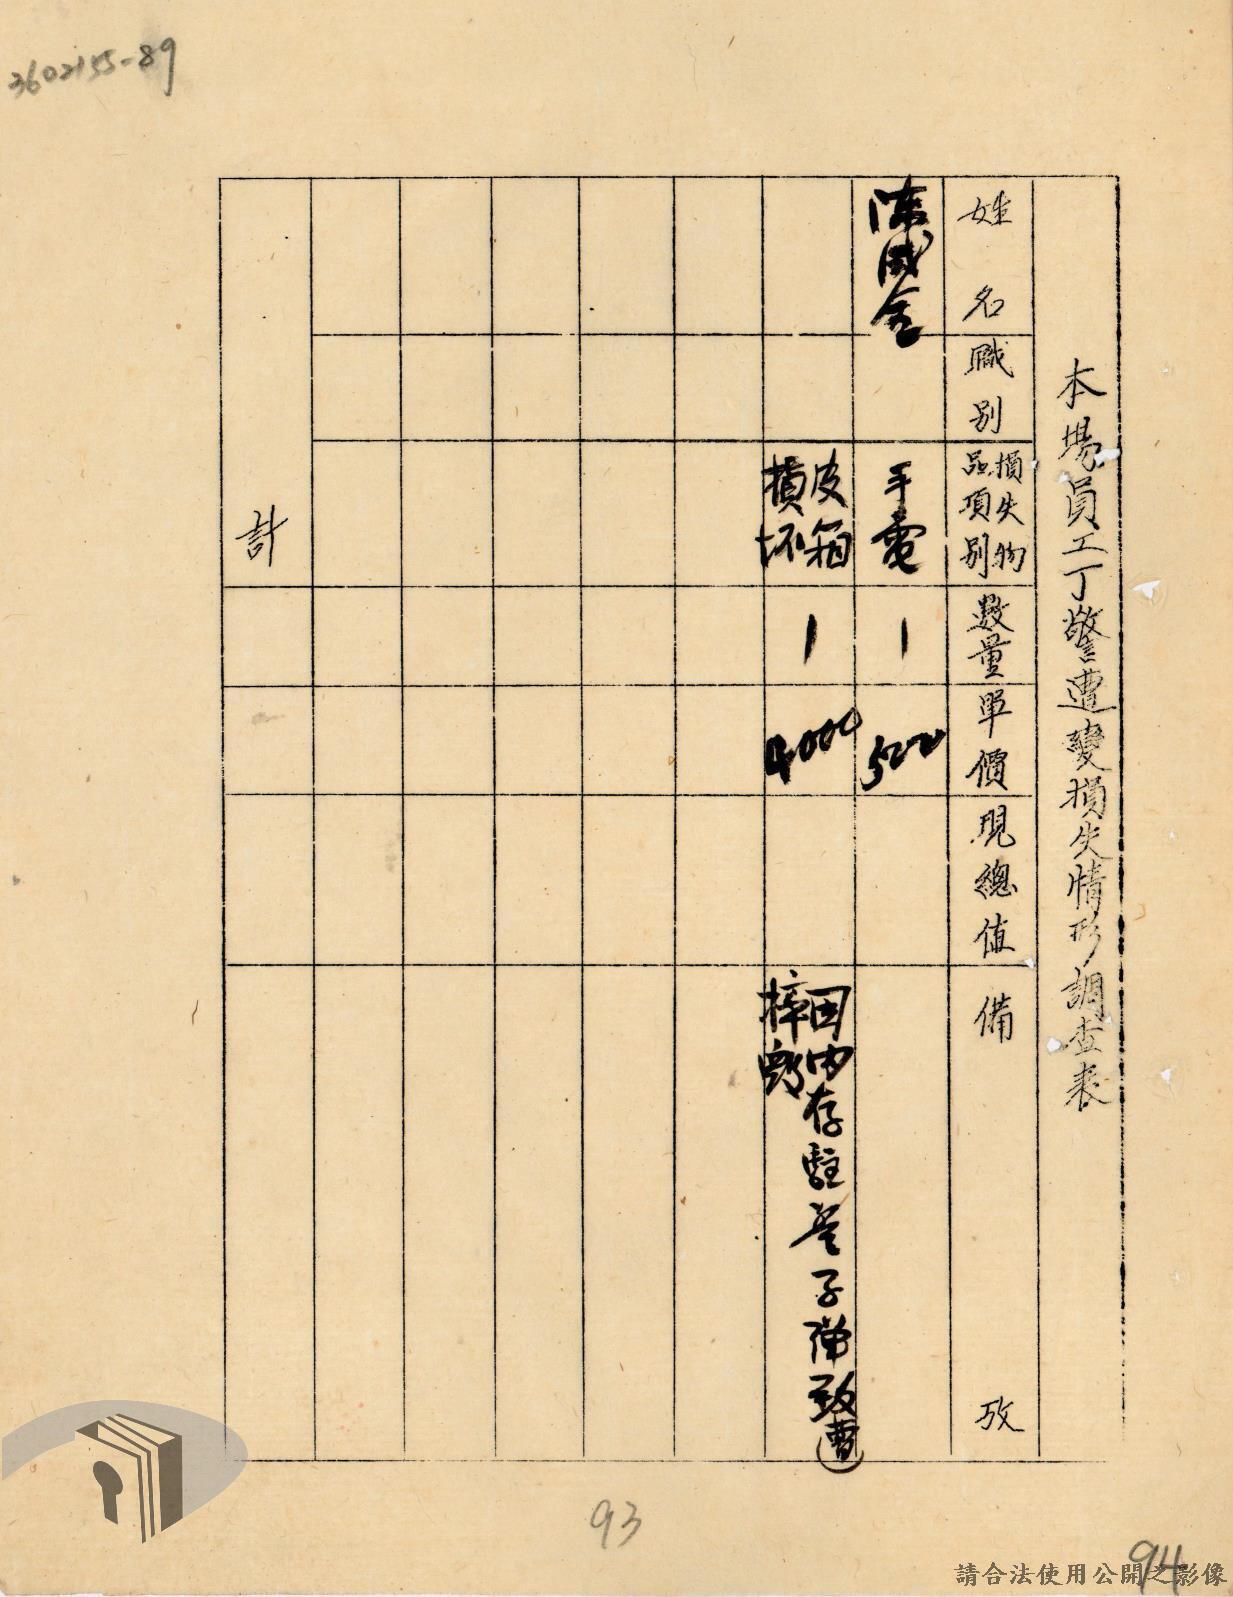 3602155-89
本場員工丁警遭變損失情形調查表
姓名
職別
損失物
品項別
數量
單價
現總值
備攷
陳成金
手電
1
500
皮箱
損坏
1
4000
因內存駐營子彈致遭
擇毀
計
93
94
請合法使用公開之影像